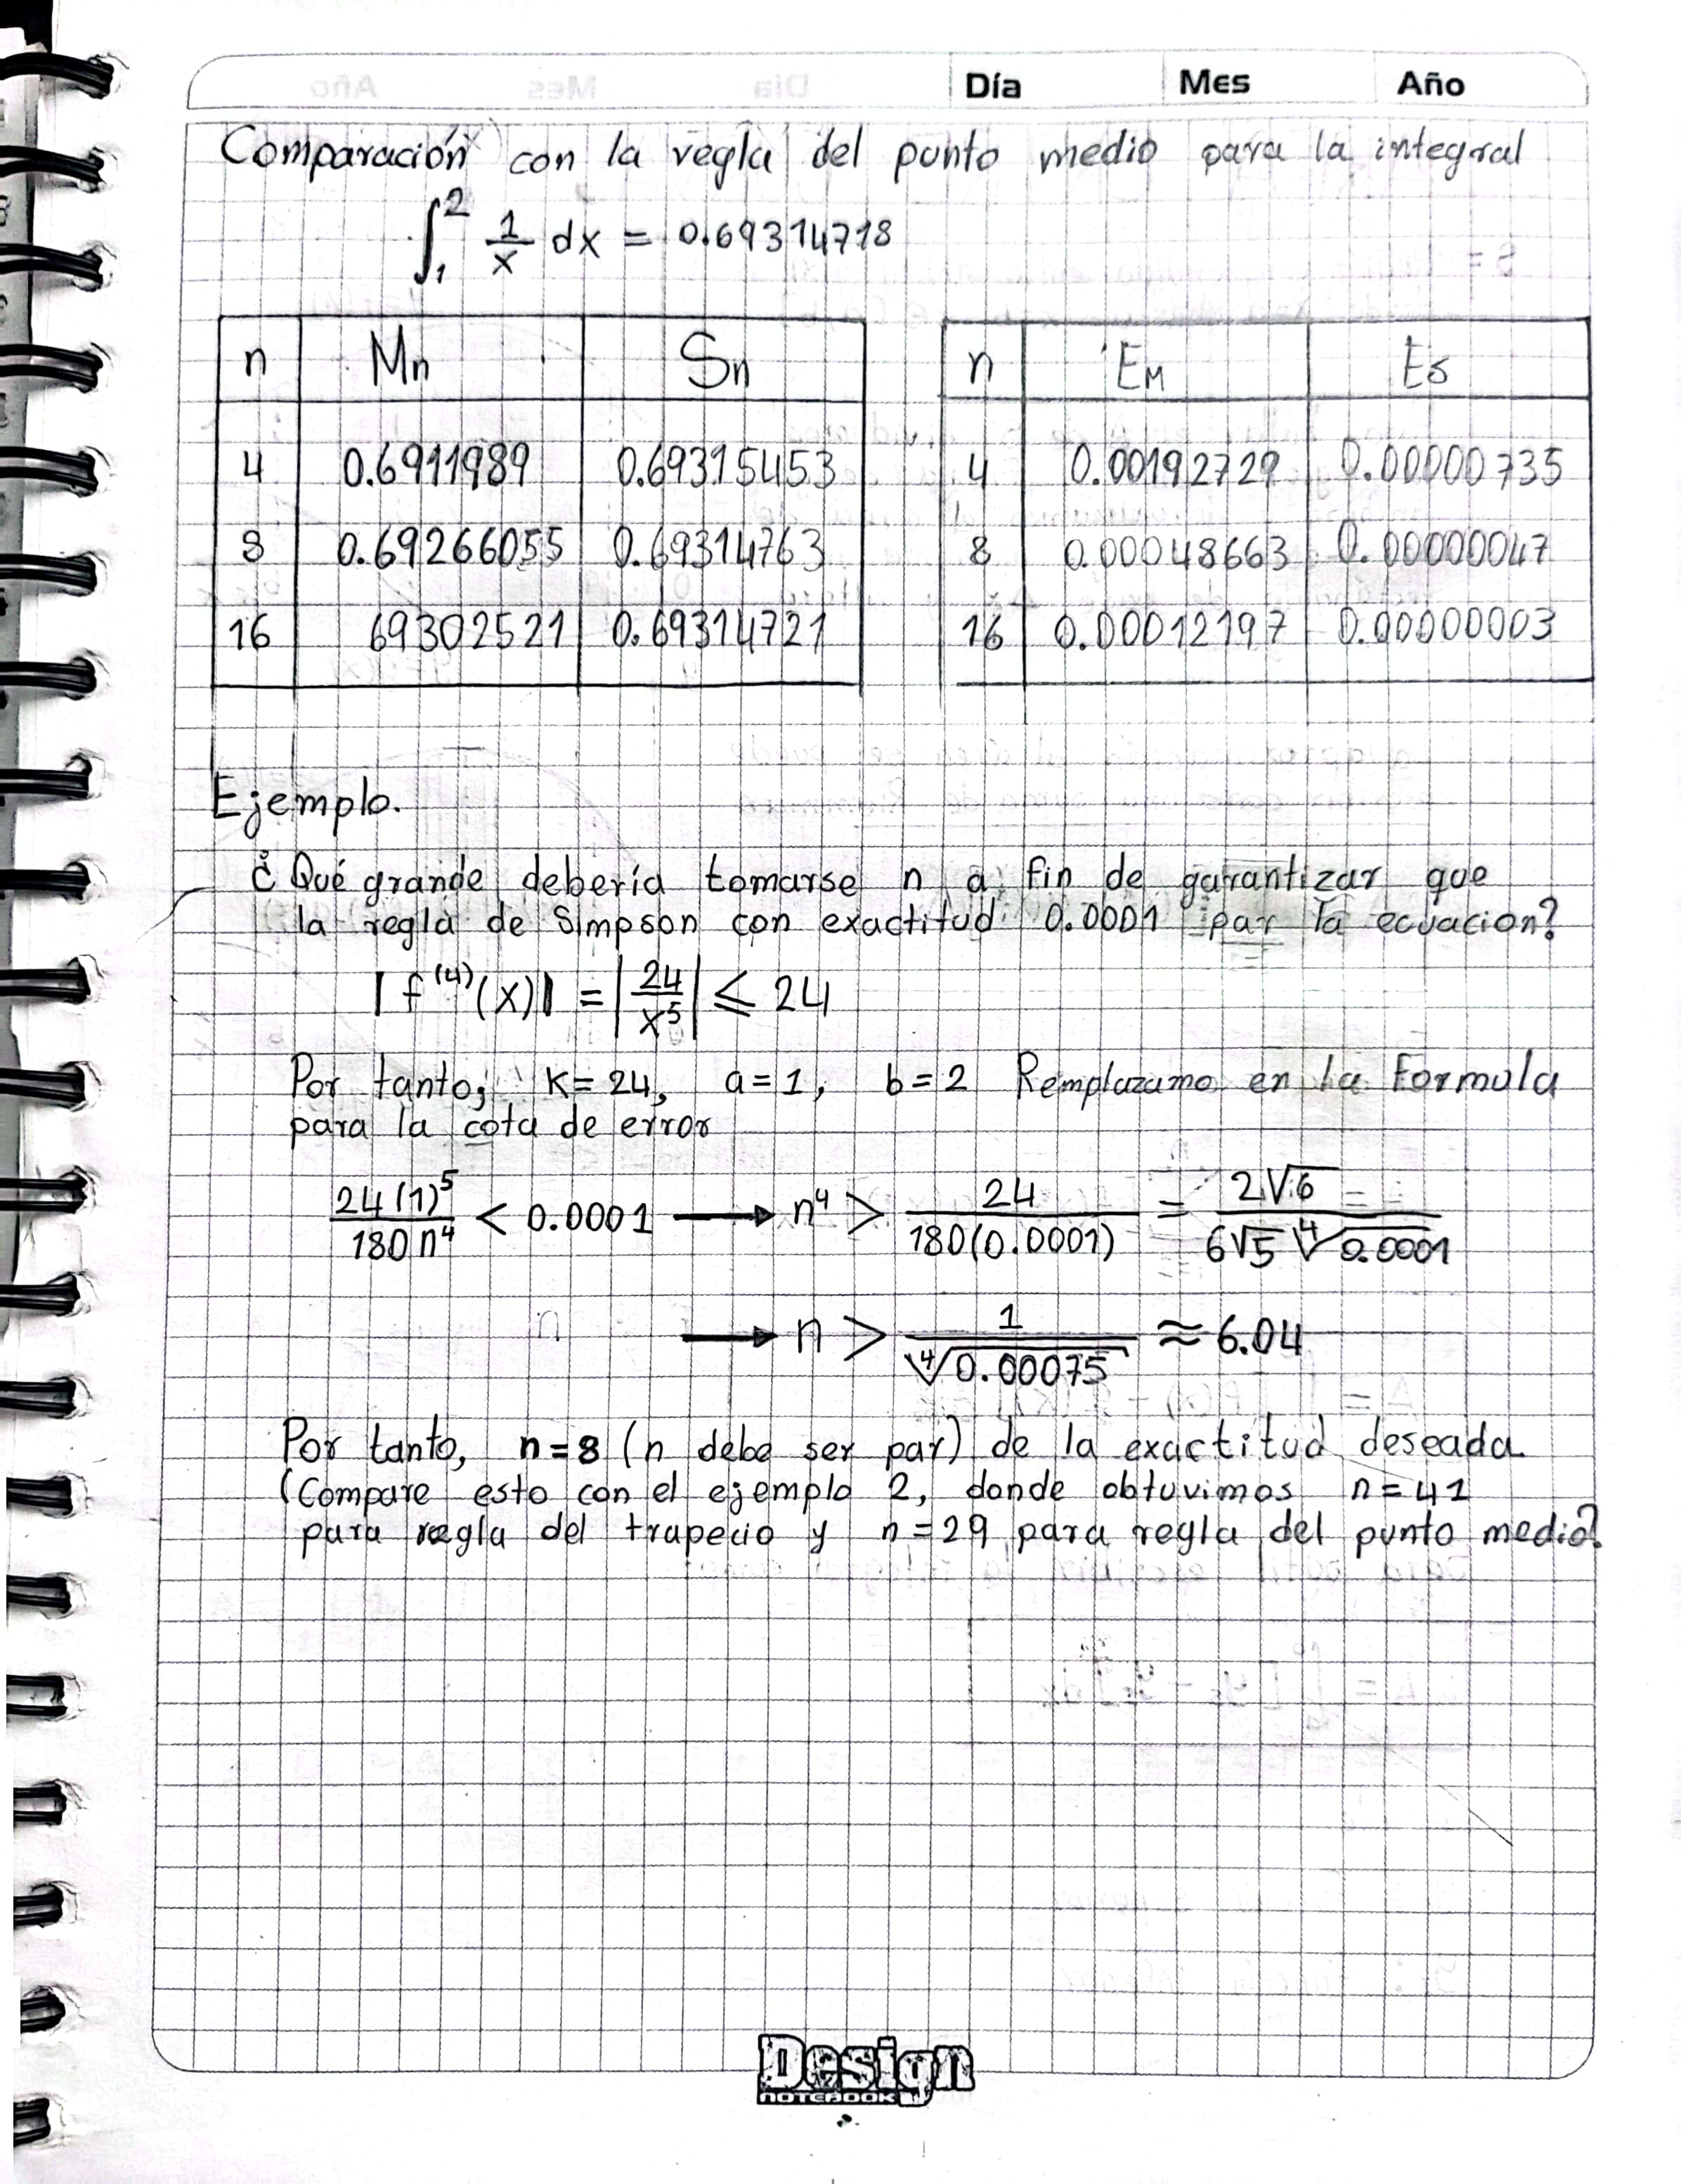 Día Mes Año
Comparación con la regla del punto medio para la integral
∫₁² 1/x dx = 0.69314718
n Mn Sn n EM Es
4 0.6911989 0.69315453 4 0.00192729 0.00000735
8 0.69266055 0.69314763 8 0.00048663 0.00000047
16 69302521 0.69314721 16 0.00012197 0.00000003
Ejemplo.
¿Qué grande debería tomarse n a fin de garantizar que
la regla de Simpson con exactitud 0.0001 par la ecuacion?
|f⁽⁴⁾(x)| = |24/x⁵| ≤ 24
Por tanto; K=24, a=1, b=2 Remplazamo en la Formula
para la cota de error
24(1)⁵/180n⁴ < 0.0001 → n⁴ > 24/180(0.0001) = 2√6/6√5 ⁴√0.0001
→ n > 1/⁴√0.00075 ≈ 6.04
Por tanto, n=8 (n debe ser par) de la exactitud deseada
(Compare esto con el ejemplo 2, donde obtuvimos n=41
para regla del trapecio y n=29 para regla del punto medio?
Design
NOTEBOOK